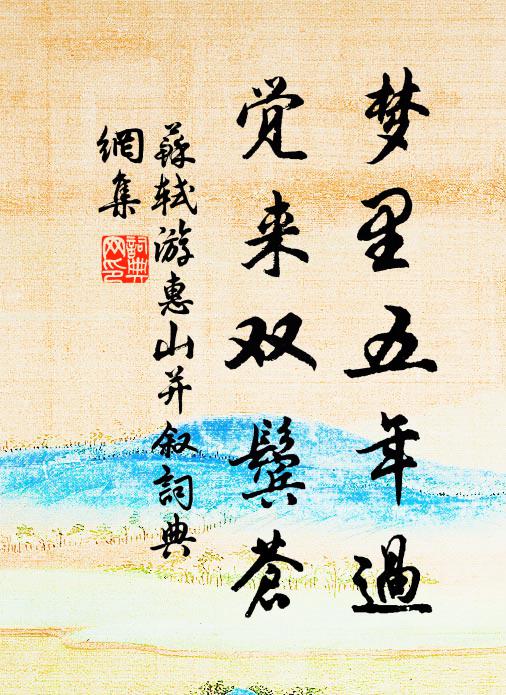 梦里五年過
觉来双鬓苍
蘇轼游惠山并叙詞典
網集
詞典
网印